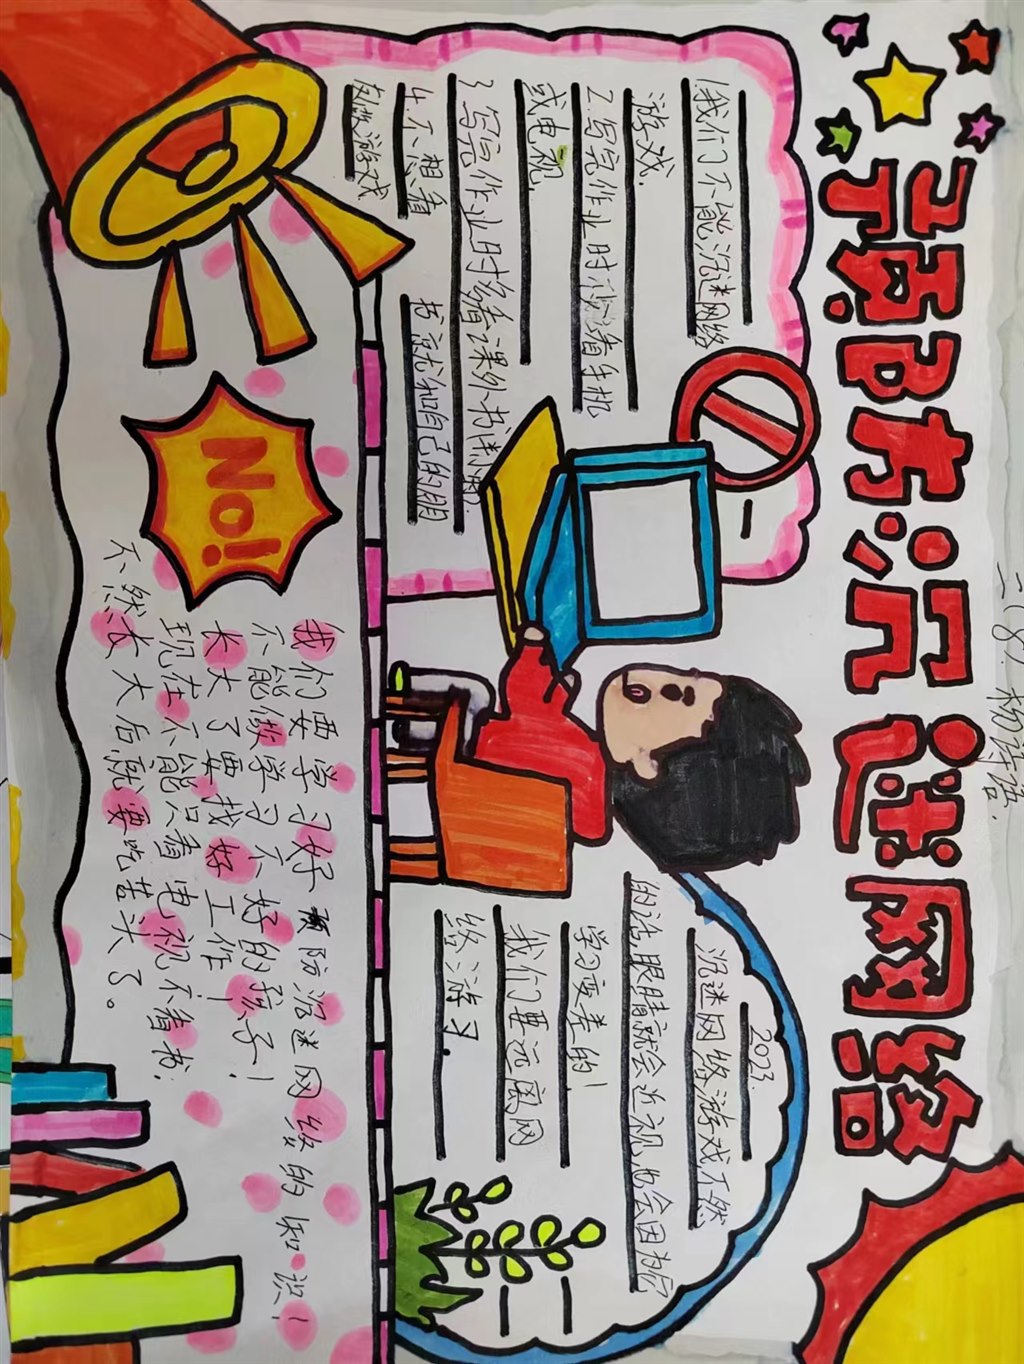 预防沉迷网络
二(8).
1.我们不能沉迷网络
游戏.
2.写完作业时汝着手机
或电视.
3.写完作业时多看课外书
4.不想看书就和自己的朋
友做游戏
2023.
沉迷网络游戏不然
的话眼睛就会近视也会因为
学习变差的!
我们要远离网
络游习.
No!
我们要学习好预防沉迷网络的知识!
不能做学习不好的孩子!
长大了要找好工作!
现在不能只看电视不看书.
不然长大后就要吃苦头了。